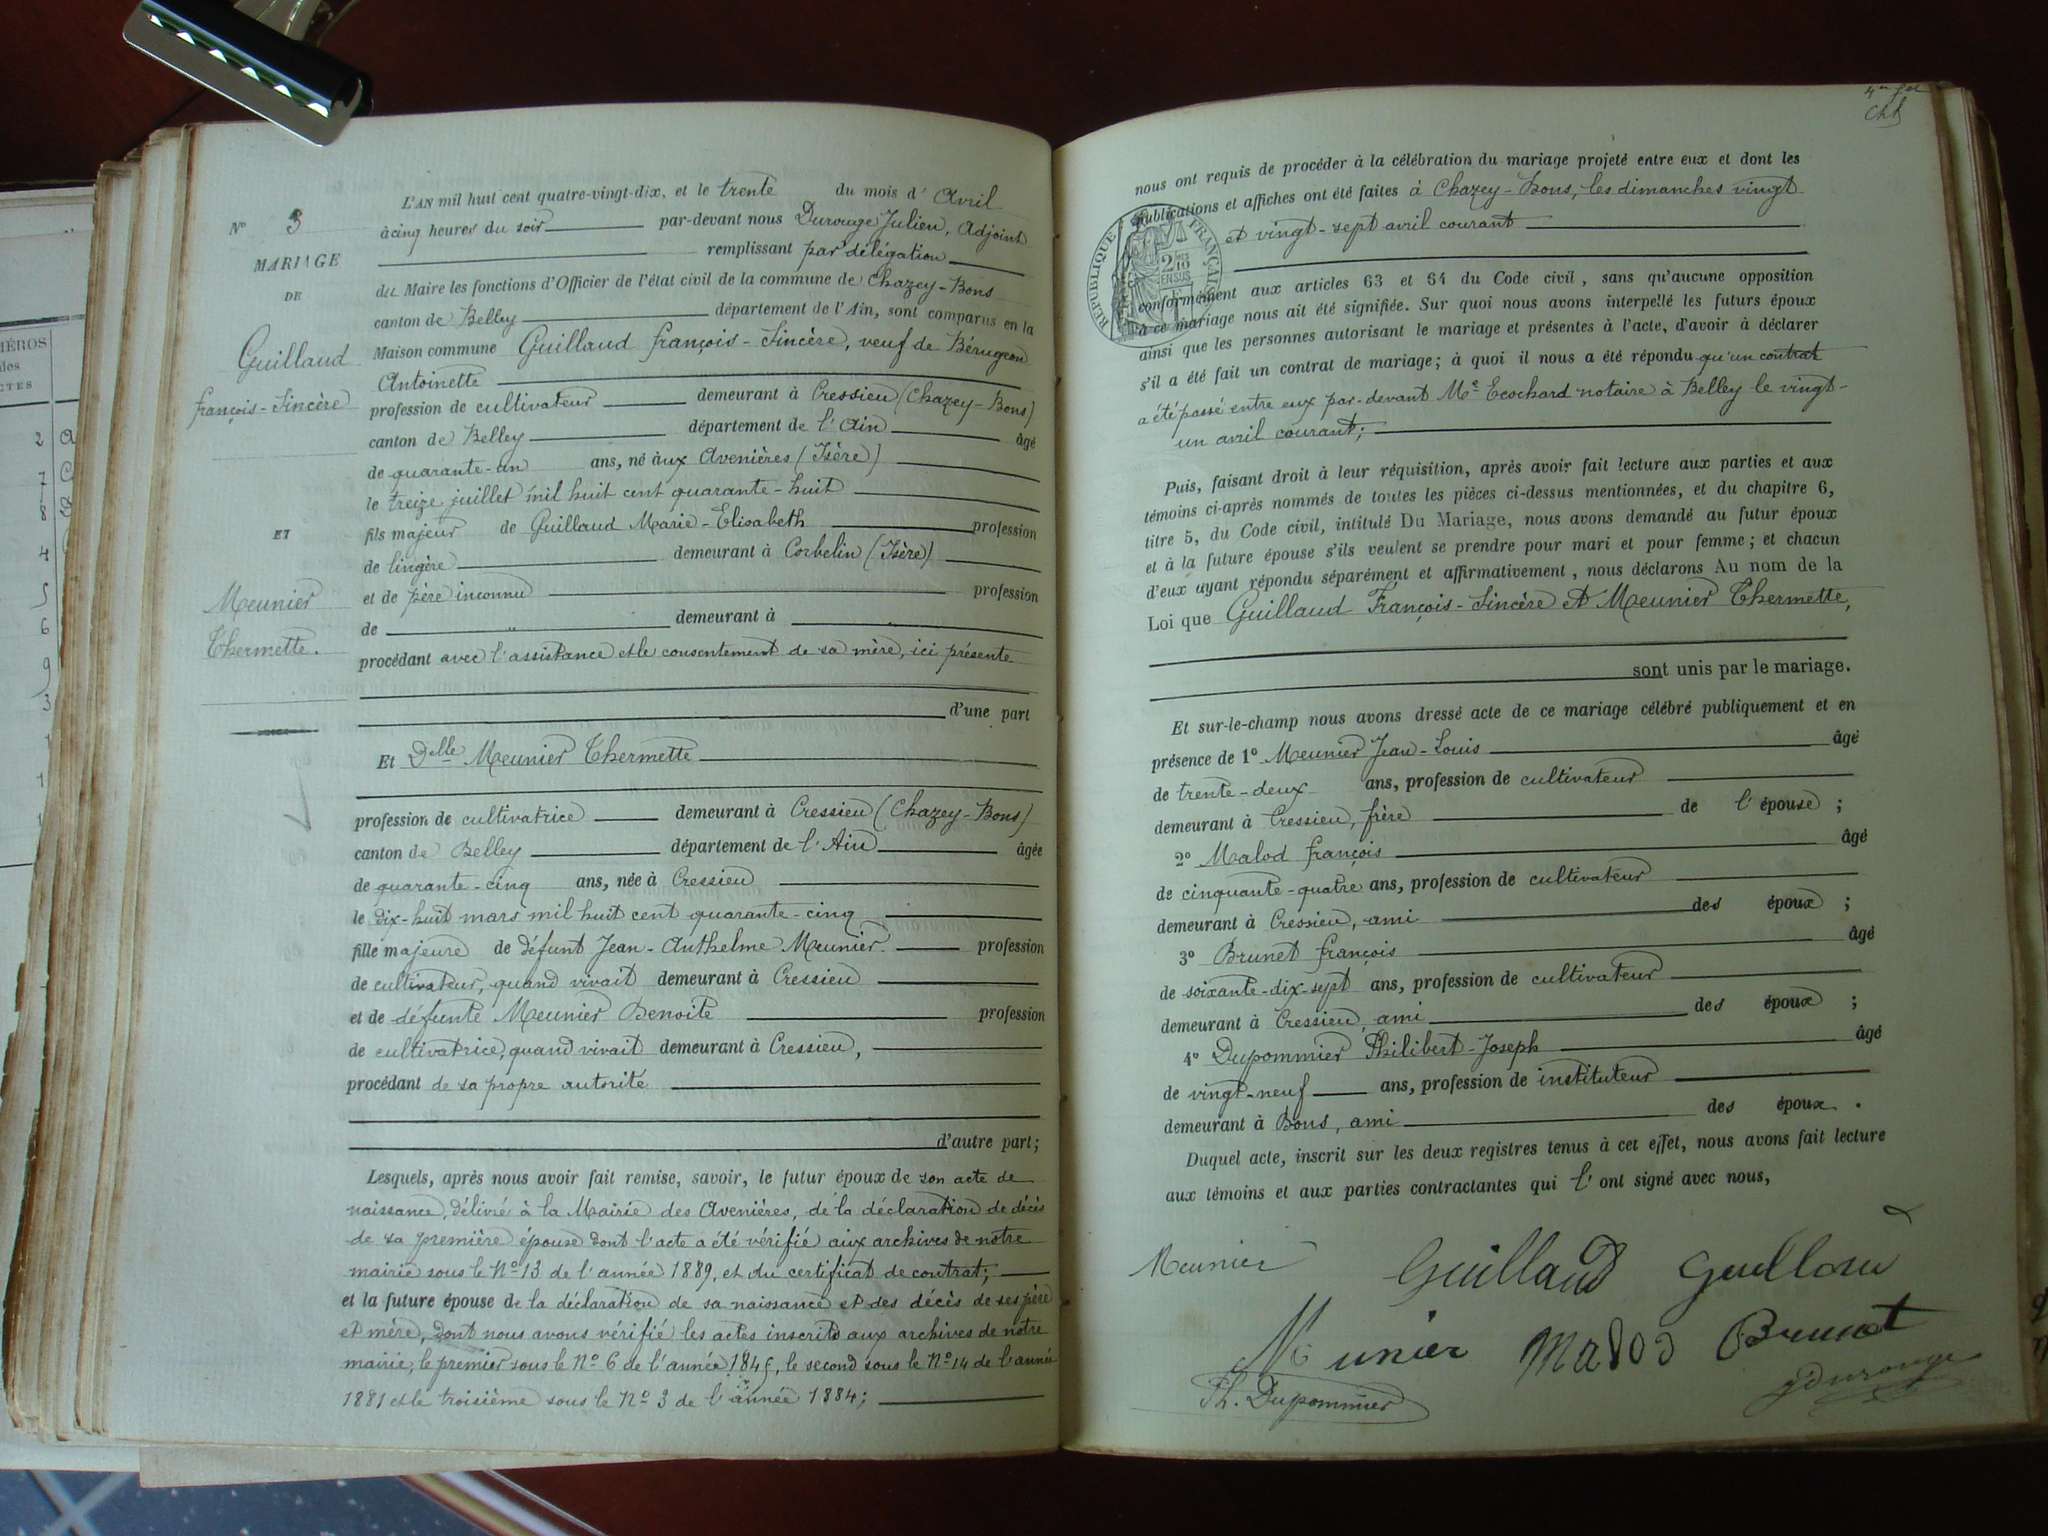 N° 3
MARIAGE
DE
Guillaud
françois-Sincère
ET
Meunier
Thermette.
L'AN mil huit cent quatre-vingt-dix, et le trente du mois d'Avril
à cinq heures du soir par-devant nous Durouge Julien, Adjoint
remplissant par délégation
du Maire les fonctions d'Officier de l'état civil de la commune de Chazey-Bons
canton de Belley département de l'Ain, sont comparus en la
Maison commune Guillaud françois-Sincère, veuf de Bérugeon
Antoinette
profession de cultivateur demeurant à Cressieu (Chazey-Bons)
canton de Belley département de l'Ain âgé
de quarante-un ans, né aux Avenières (Isère)
le treize juillet mil huit cent quarante-huit
fils majeur de Guillaud Marie-Elisabeth profession
de lingère demeurant à Corbelin (Isère)
et de père inconnu profession
de " demeurant à
procédant avec l'assistance et le consentement de sa mère, ici présente
d'une part
Et Delle Meunier Thermette
profession de cultivatrice demeurant à Cressieu (Chazey-Bons)
canton de Belley département de l'Ain âgée
de quarante-cinq ans, née à Cressieu
le dix-huit mars mil huit cent quarante-cinq
fille majeure de défunt Jean-Anthelme Meunier profession
de cultivateur, quand vivait demeurant à Cressieu
et de défunte Meunier Benoite profession
de cultivatrice, quand vivait demeurant à Cressieu,
procédant de sa propre autorité
d'autre part;
Lesquels, après nous avoir fait remise, savoir, le futur époux de son acte de
naissance, délivré à la Mairie des Avenières, de la déclaration de décès
de sa première épouse dont l'acte a été vérifié aux archives de notre
mairie sous le N° 13 de l'année 1889, et du certificat de contrat;
et la future épouse de la déclaration de sa naissance et des décès de ses père
et mère, dont nous avons vérifié les actes inscrits aux archives de notre
mairie, le premier sous le N° 6 de l'année 1845, le second sous le N° 14 de l'année
1881 et le troisième sous le N° 3 de l'année 1884;
nous ont requis de procéder à la célébration du mariage projeté entre eux et dont les
publications et affiches ont été faites à Chazey-Bons, les dimanches vingt
et vingt-sept avril courant
RÉPUBLIQUE FRANÇAISE
2/10
EN SUS
conformément aux articles 63 et 64 du Code civil, sans qu'aucune opposition
à ce mariage nous ait été signifiée. Sur quoi nous avons interpellé les futurs époux
ainsi que les personnes autorisant le mariage et présentes à l'acte, d'avoir à déclarer
s'il a été fait un contrat de mariage; à quoi il nous a été répondu qu'un contrat
a été passé entre eux par-devant Me Ecochard notaire à Belley le vingt-
un avril courant;
Puis, faisant droit à leur réquisition, après avoir fait lecture aux parties et aux
témoins ci-après nommés de toutes les pièces ci-dessus mentionnées, et du chapitre 6,
titre 5, du Code civil, intitulé Du Mariage, nous avons demandé au futur époux
et à la future épouse s'ils veulent se prendre pour mari et pour femme; et chacun
d'eux ayant répondu séparément et affirmativement, nous déclarons Au nom de la
Loi que Guillaud François-Sincère et Meunier Thermette,
sont unis par le mariage.
Et sur-le-champ nous avons dressé acte de ce mariage célébré publiquement et en
présence de 1° Meunier Jean-Louis âgé
de trente-deux ans, profession de cultivateur
demeurant à Cressieu, frère de l'épouse;
2° Malod françois âgé
de cinquante-quatre ans, profession de cultivateur
demeurant à Cressieu, ami des époux;
3° Brunet françois âgé
de soixante-dix-sept ans, profession de cultivateur
demeurant à Cressieu, ami des époux;
4° Dupommier Philibert-Joseph âgé
de vingt-neuf ans, profession de instituteur
demeurant à Bons, ami des époux.
Duquel acte, inscrit sur les deux registres tenus à cet effet, nous avons fait lecture
aux témoins et aux parties contractantes qui l'ont signé avec nous,
Meunier Guillaud Guillaud
Meunier Malod Brunet
Ph. Dupommier JDurouge
MÉROS
des
CTES
2
7
8
4
5
6
9
3